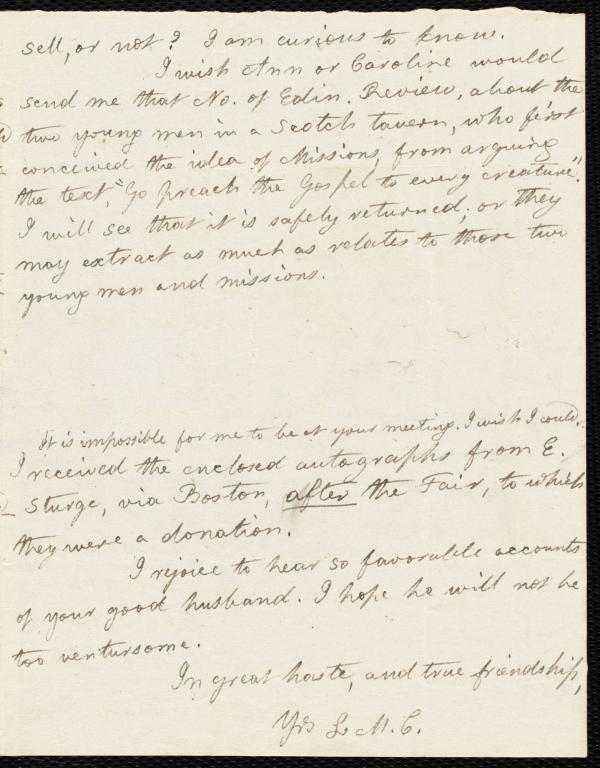 sell, or not? I am curious to know.
I wish Ann or Caroline would
send me that No. of Edin. Review, about the
two young men in a Scotch tavern, who first
conceived the idea of Missions, from arguing
the text, "Go preach the Gospel to every creature".
I will see that it is safely returned; or they
may extract as much as relates to those two
young men and missions.
It is impossible for me to be at your meeting. I wish I could.
I received the enclosed autographs from E.
Sturge, via Boston, after the Fair, to which
they were a donation.
I rejoice to hear so favorable accounts
of your good husband. I hope he will not be
too venturesome.
In great haste, and true friendship,
Yrs L. M. C.